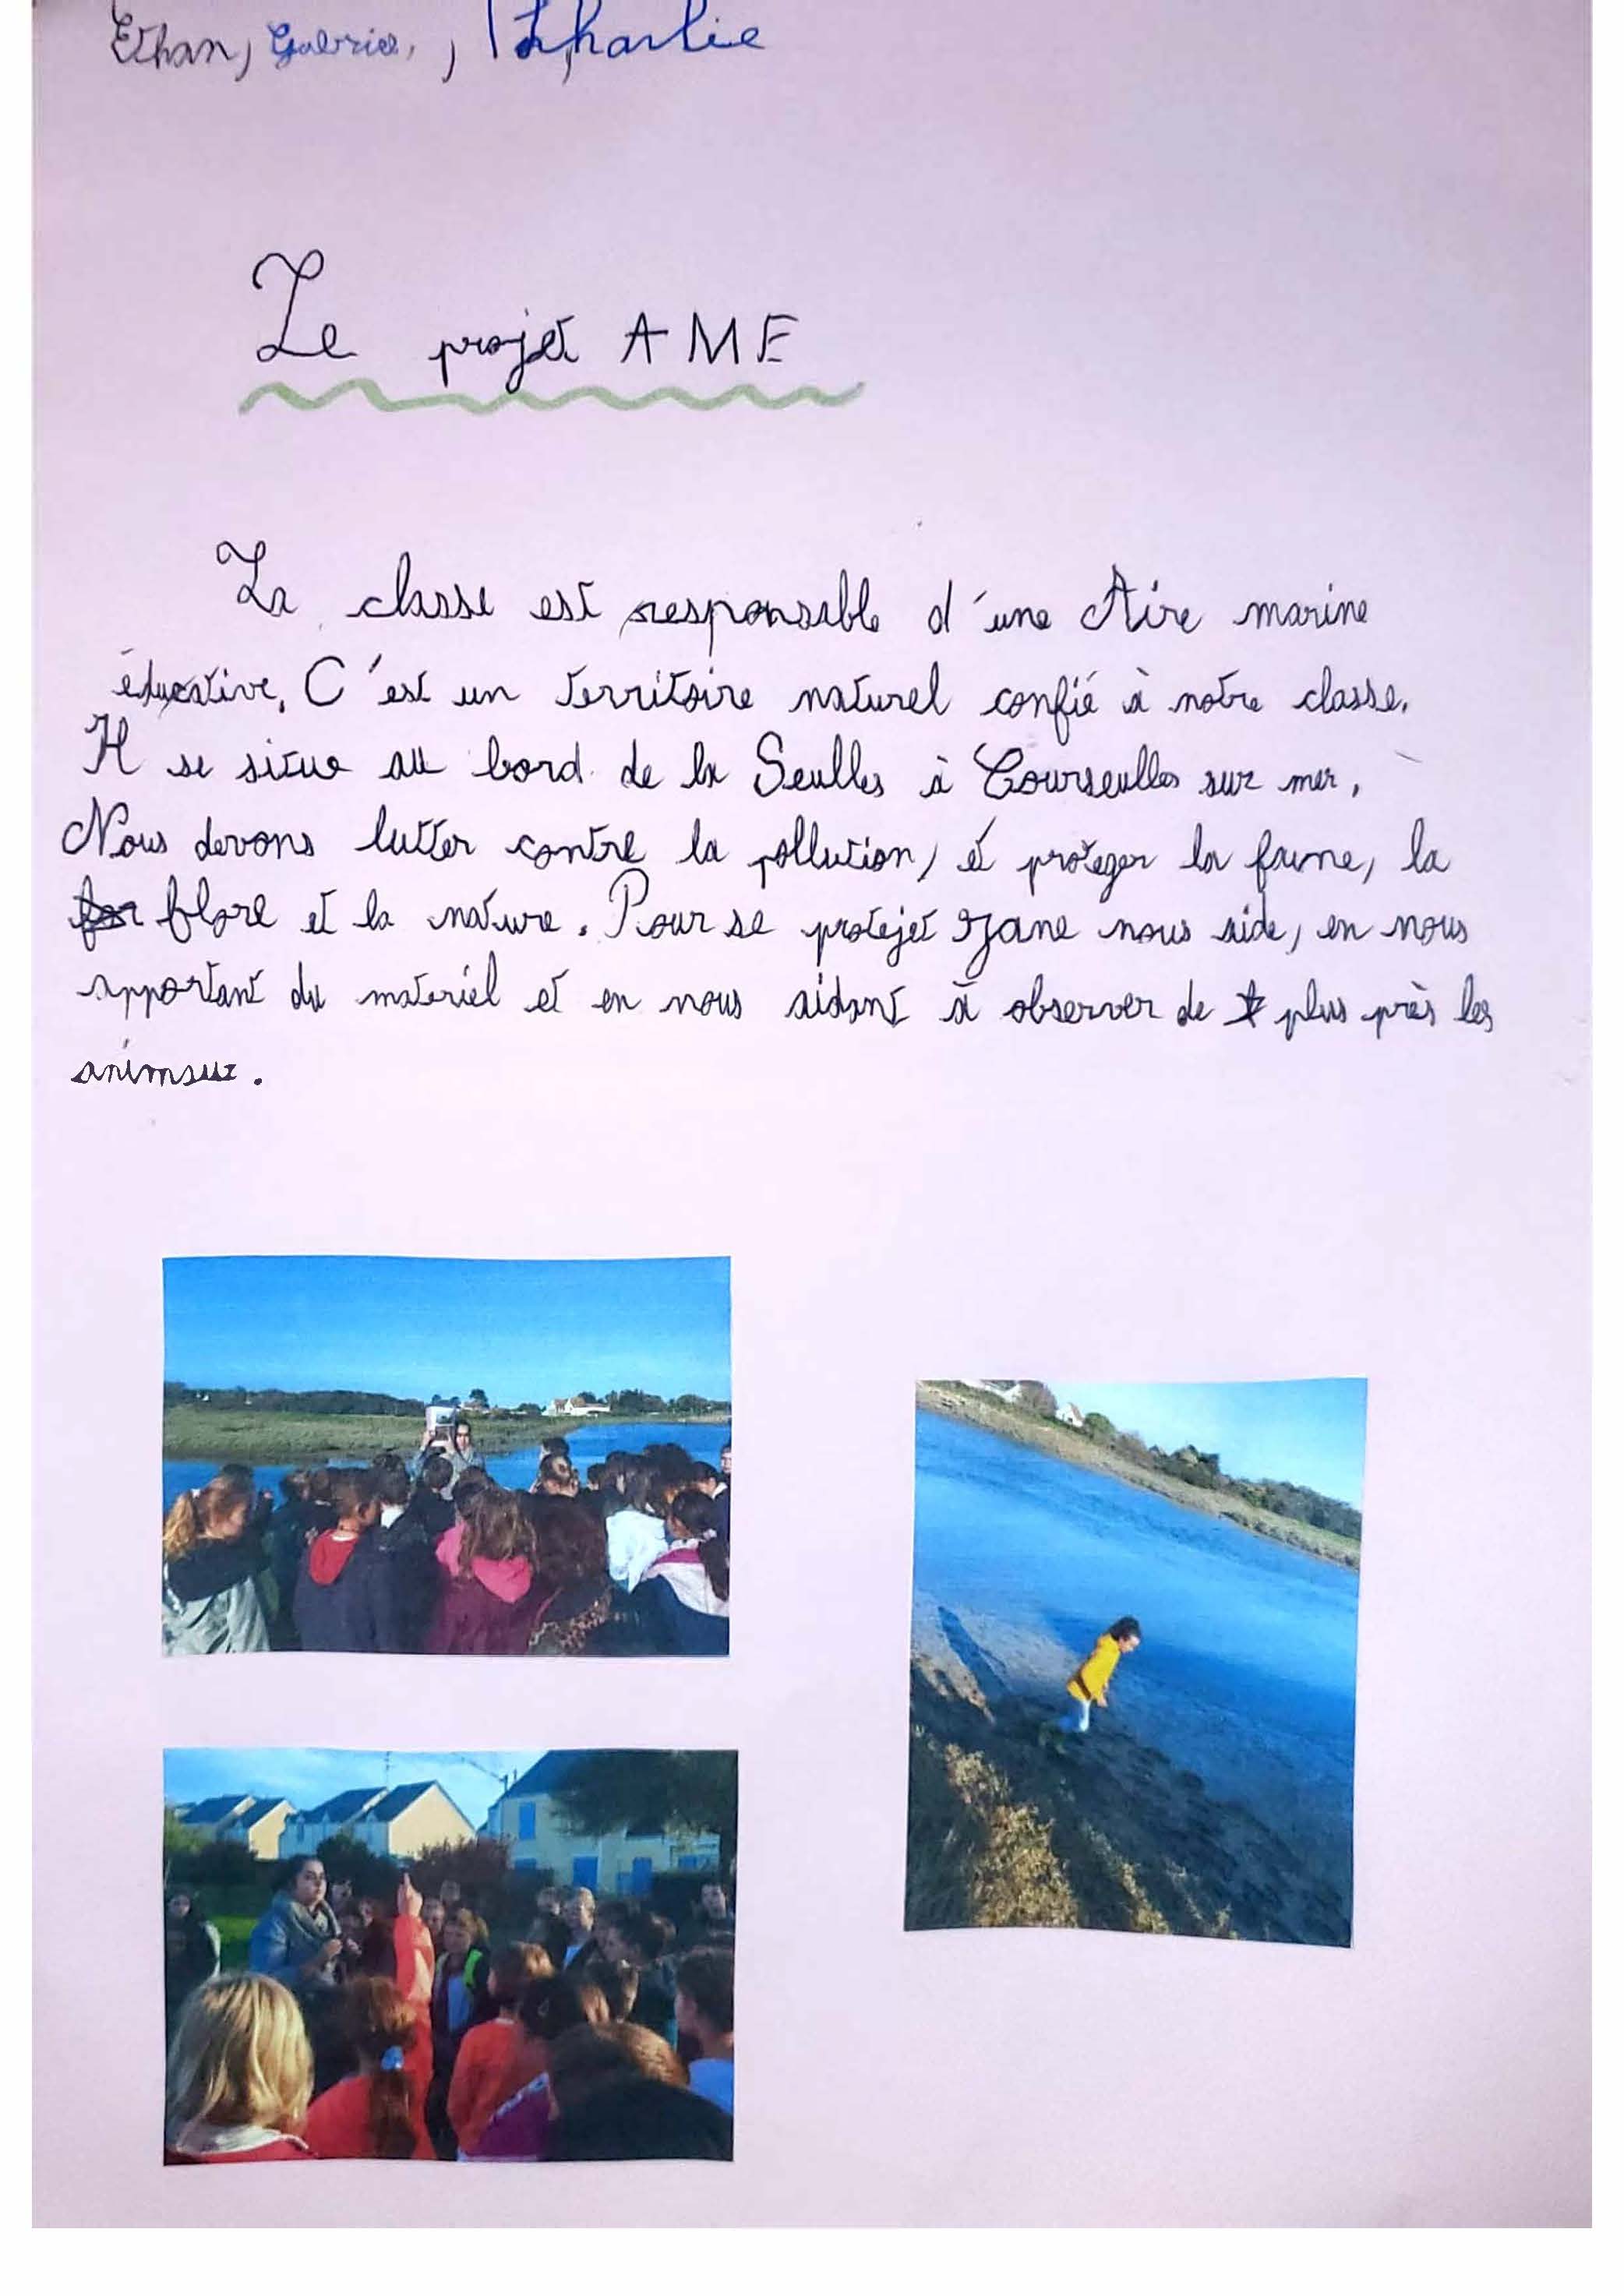 Ethan, Gabriel, , Charlie
Le projet AME
La classe est responsable d'une Aire marine
éducative. C'est un territoire naturel confié à notre classe.
Il se situe au bord de la Seulles à Courseulles sur mer.
Nous devons lutter contre la pollution, et protéger la faune, la
flore et la nature. Pour se projet Ozane nous aide, en nous
apportant du matériel et en nous aidant à observer de plus près les
animaux.